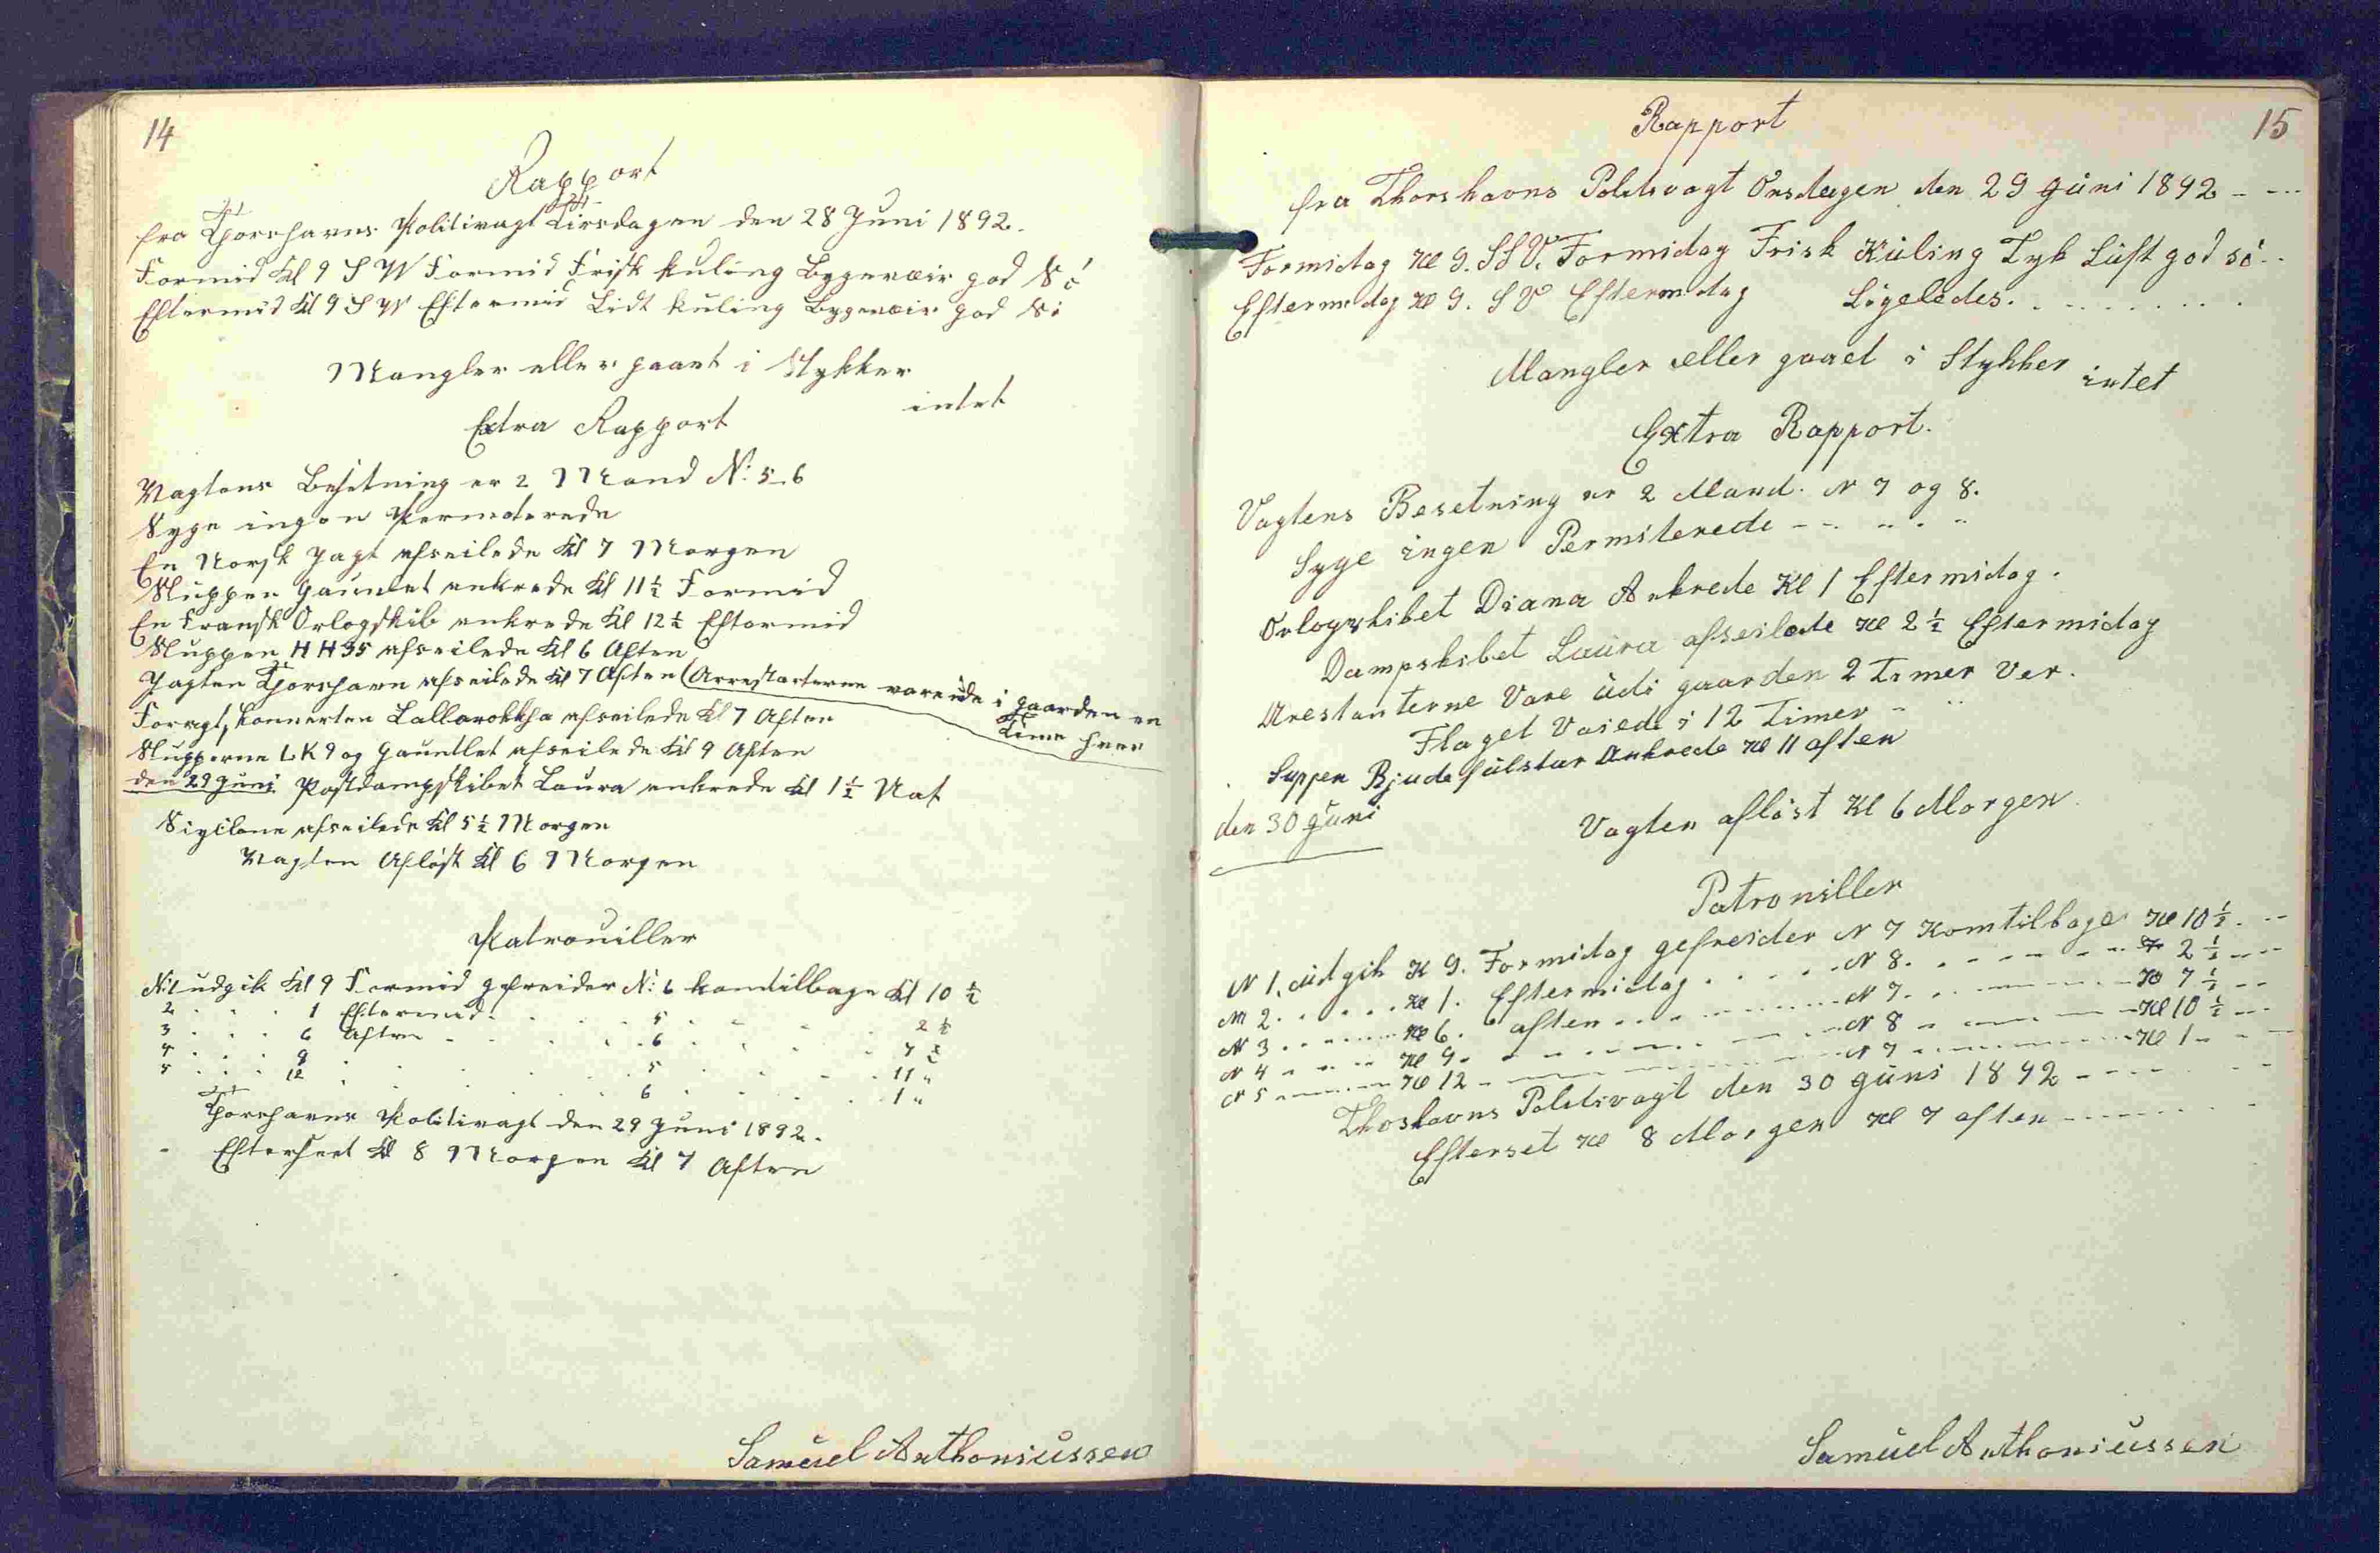 14
Rapport
fra Thorshavns Politivagt Tirsdagen den 28 Juni 1892.
Formid Kl 9 S W Formid Frisk kuling Bygeveir god Sö
Eftermid Kl 9 S W Eftermid Lidt kuling Bygeveir god Sö
Mangler eller gaaet i Stykker
intet
Extra Rapport
Vagtens Besetning er 2 Mand N: 5. 6
Syge ingen Permeterede
En Norsk Jagt afseilede Kl 7 Morgen
Sluppen Gauntlet ankrede Kl 11½ Formid
En Fransk Orlogskib ankrede Kl 12½ Eftermid
Sluppen H H 35 afseilede Kl 6 Aften
Jagten Thorshavn afseilede Kl 7 Aften (Arrestarterne vare ude i gaarden en
Time hver
Foragt, konnerten Lallarokkha afseilede Kl 7 Aften
Slupperne LK 9 og Gauntlet afseilede Kl 9 Aften
den 29 Juni Postdampskibet Laura ankrede Kl 1½ Nat
afseilede Kl 5½ Morgen
Vagten Aflöst Kl 6 Morgen
Patrouiller
N:1 udgik Kl 9 Formid gefreider N: 6 komtilbage Kl 10 ½
2 . . . 1 Eftermid . . . 5 . . . 2 ½
3 . . . 6 Aften . . . 6 . . . 7 ½
4 . . . 9 . . . 5 . . . 11 "
5 . . . 12 . . . 6 . . . 1 "
Thorshavns Politivagt den 29 Juni 1892.
Efterseet Kl 8 Morgen Kl 7 Aften
Samuel Anthoniussen
15
Rapport
fra Thorshavns Politivagt Onsdagen den 29 Juni 1892 - - -
Formidag Kl 9. SSV. Formidag Frisk Kuling Tyk Luft god sö . .
Eftermidag Kl 9. S V Eftermidag Ligeledes. . . . . . . .
Mangler eller gaaet i Stykker intet
Extra Rapport.
Vagtens Besetning er 2 Mand. N 7 og 8.
Syge ingen Permiterede - - - - -
Orlogskibet Diana Ankrede Kl 1 Eftermidag.
Dampskibet Laura afseilede Kl 2½ Eftermidag
Arestanterne Vare udi gaarden 2 Timer Ver.
Flaget Vaiede i 12 Timer - - -
Suppen Ankrede Kl 11 aften
den 30 Juni
Vagten aflöst Kl 6 Morgen
Patroniller
N 1. udgik K 9. Formidag gefreider N 7 Komtilbage Kl 10½. - -
N 2 . . . . . Kl 1. Eftermidag . . . . . N 8. - - - - 2½ - -
N 3 . . . . . Kl 6. aften . . . . . N 7. - - - - Kl 7½ - -
N 4 - - - Kl 9. - - - - N 8 - - - - Kl 10½ - -
N 5 - - - Kl 12 - - - - N 7 - - - - Kl 1 - - -
Thoshavns Politivagt den 30 Juni 1892 - - - -
Efterset Kl 8 Morgen Kl 7 aften - - - -
Samuel Anthoniussen